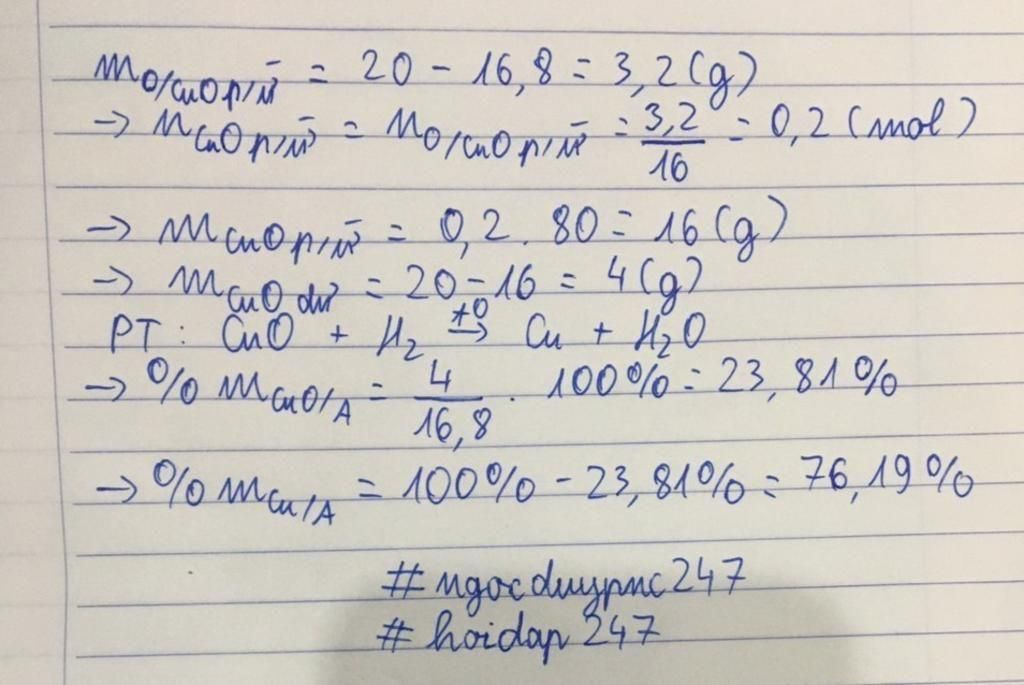 mO/CuO p/ứ = 20 - 16,8 = 3,2 (g)
→ nCuO p/ứ = nO/CuO p/ứ = 3,2/16 = 0,2 (mol)
→ mCuO p/ứ = 0,2 . 80 = 16 (g)
→ mCuO dư = 20 - 16 = 4 (g)
PT : CuO + H2 →to Cu + H2O
→ % mCuO/A = 4/16,8 . 100% = 23,81%
→ % mCu/A = 100% - 23,81% = 76,19%
#ngocduypnc247
#hoidap247